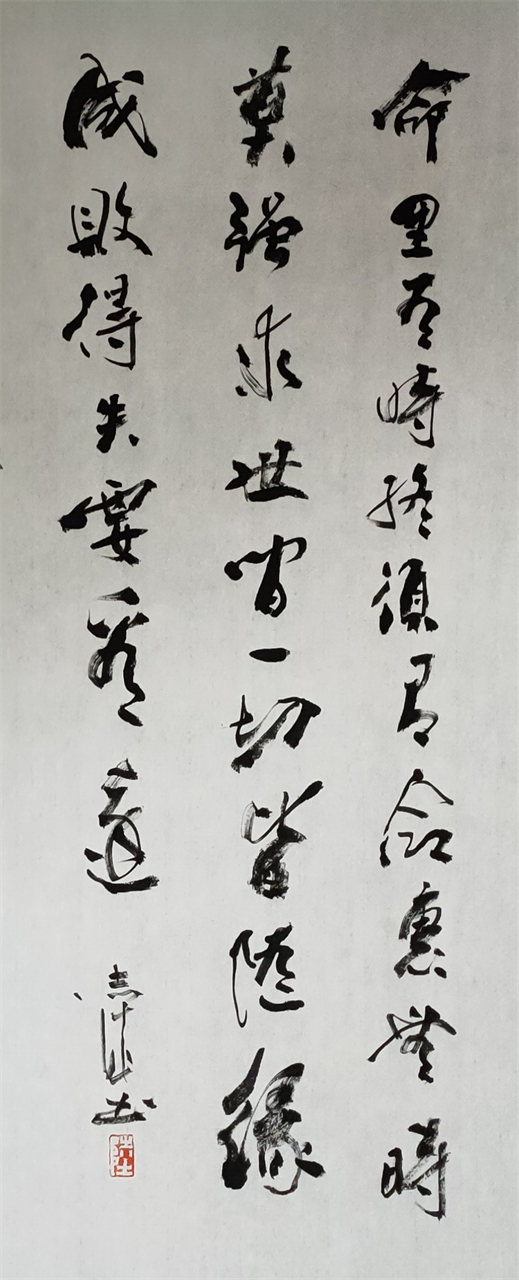 命里有時終須有命裏無時
莫強求世間一切皆隨緣
成敗得失要看
志 书